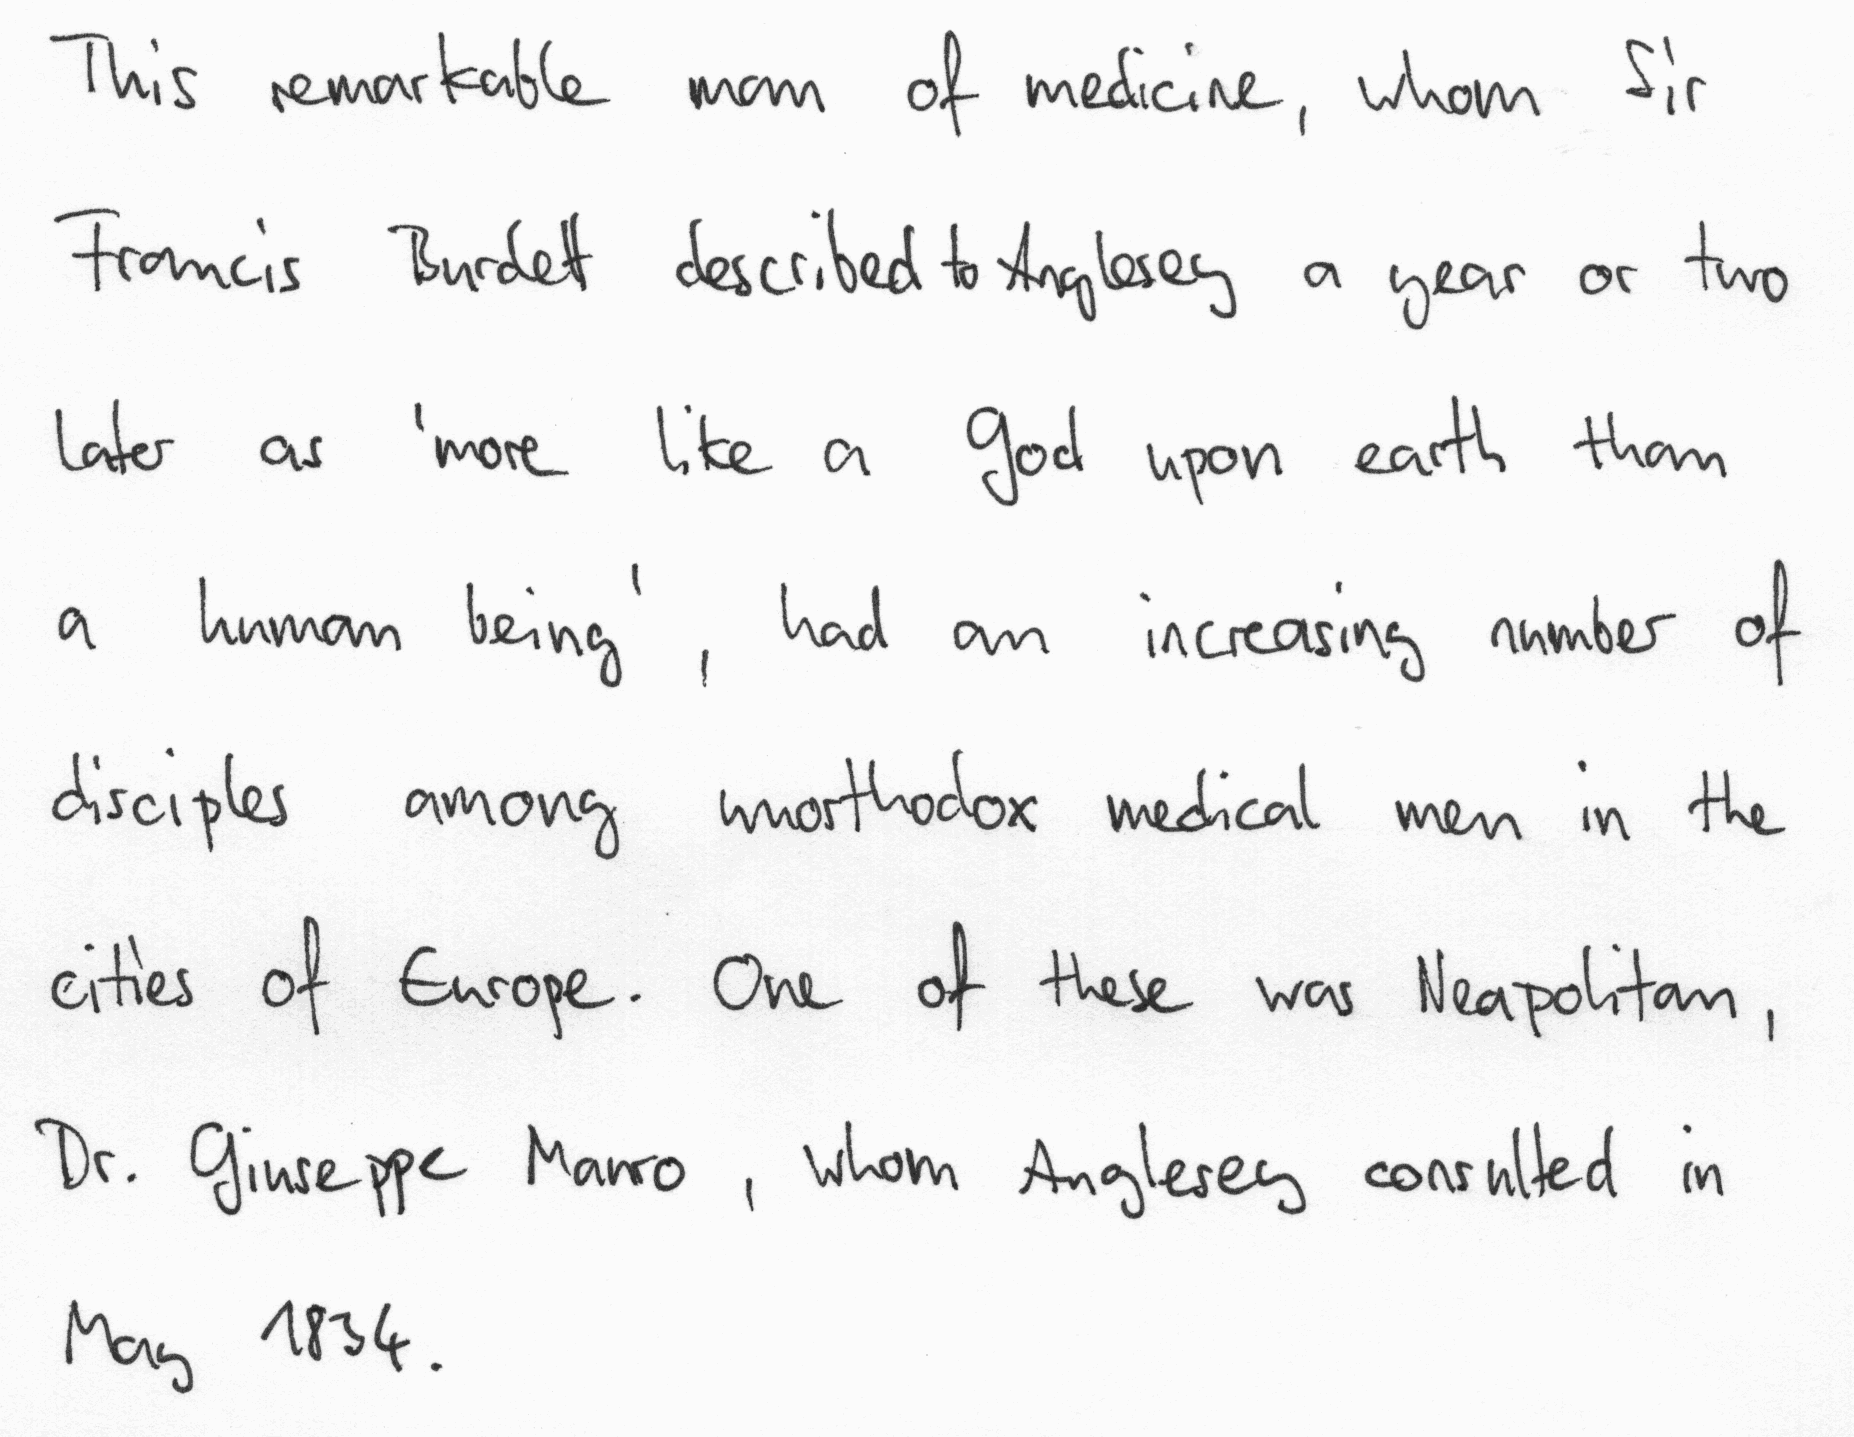 This remarkable man of medicine, whom Sir
Francis Burdett described to Anglesey a year or two
later as 'more like a God upon earth than
a human being', had an increasing number of
disciples among unorthodox medical men in the
cities of Europe. One of these was Neapolitan,
Dr. Giuseppe Mauro, whom Anglesey consulted in
May 1834.